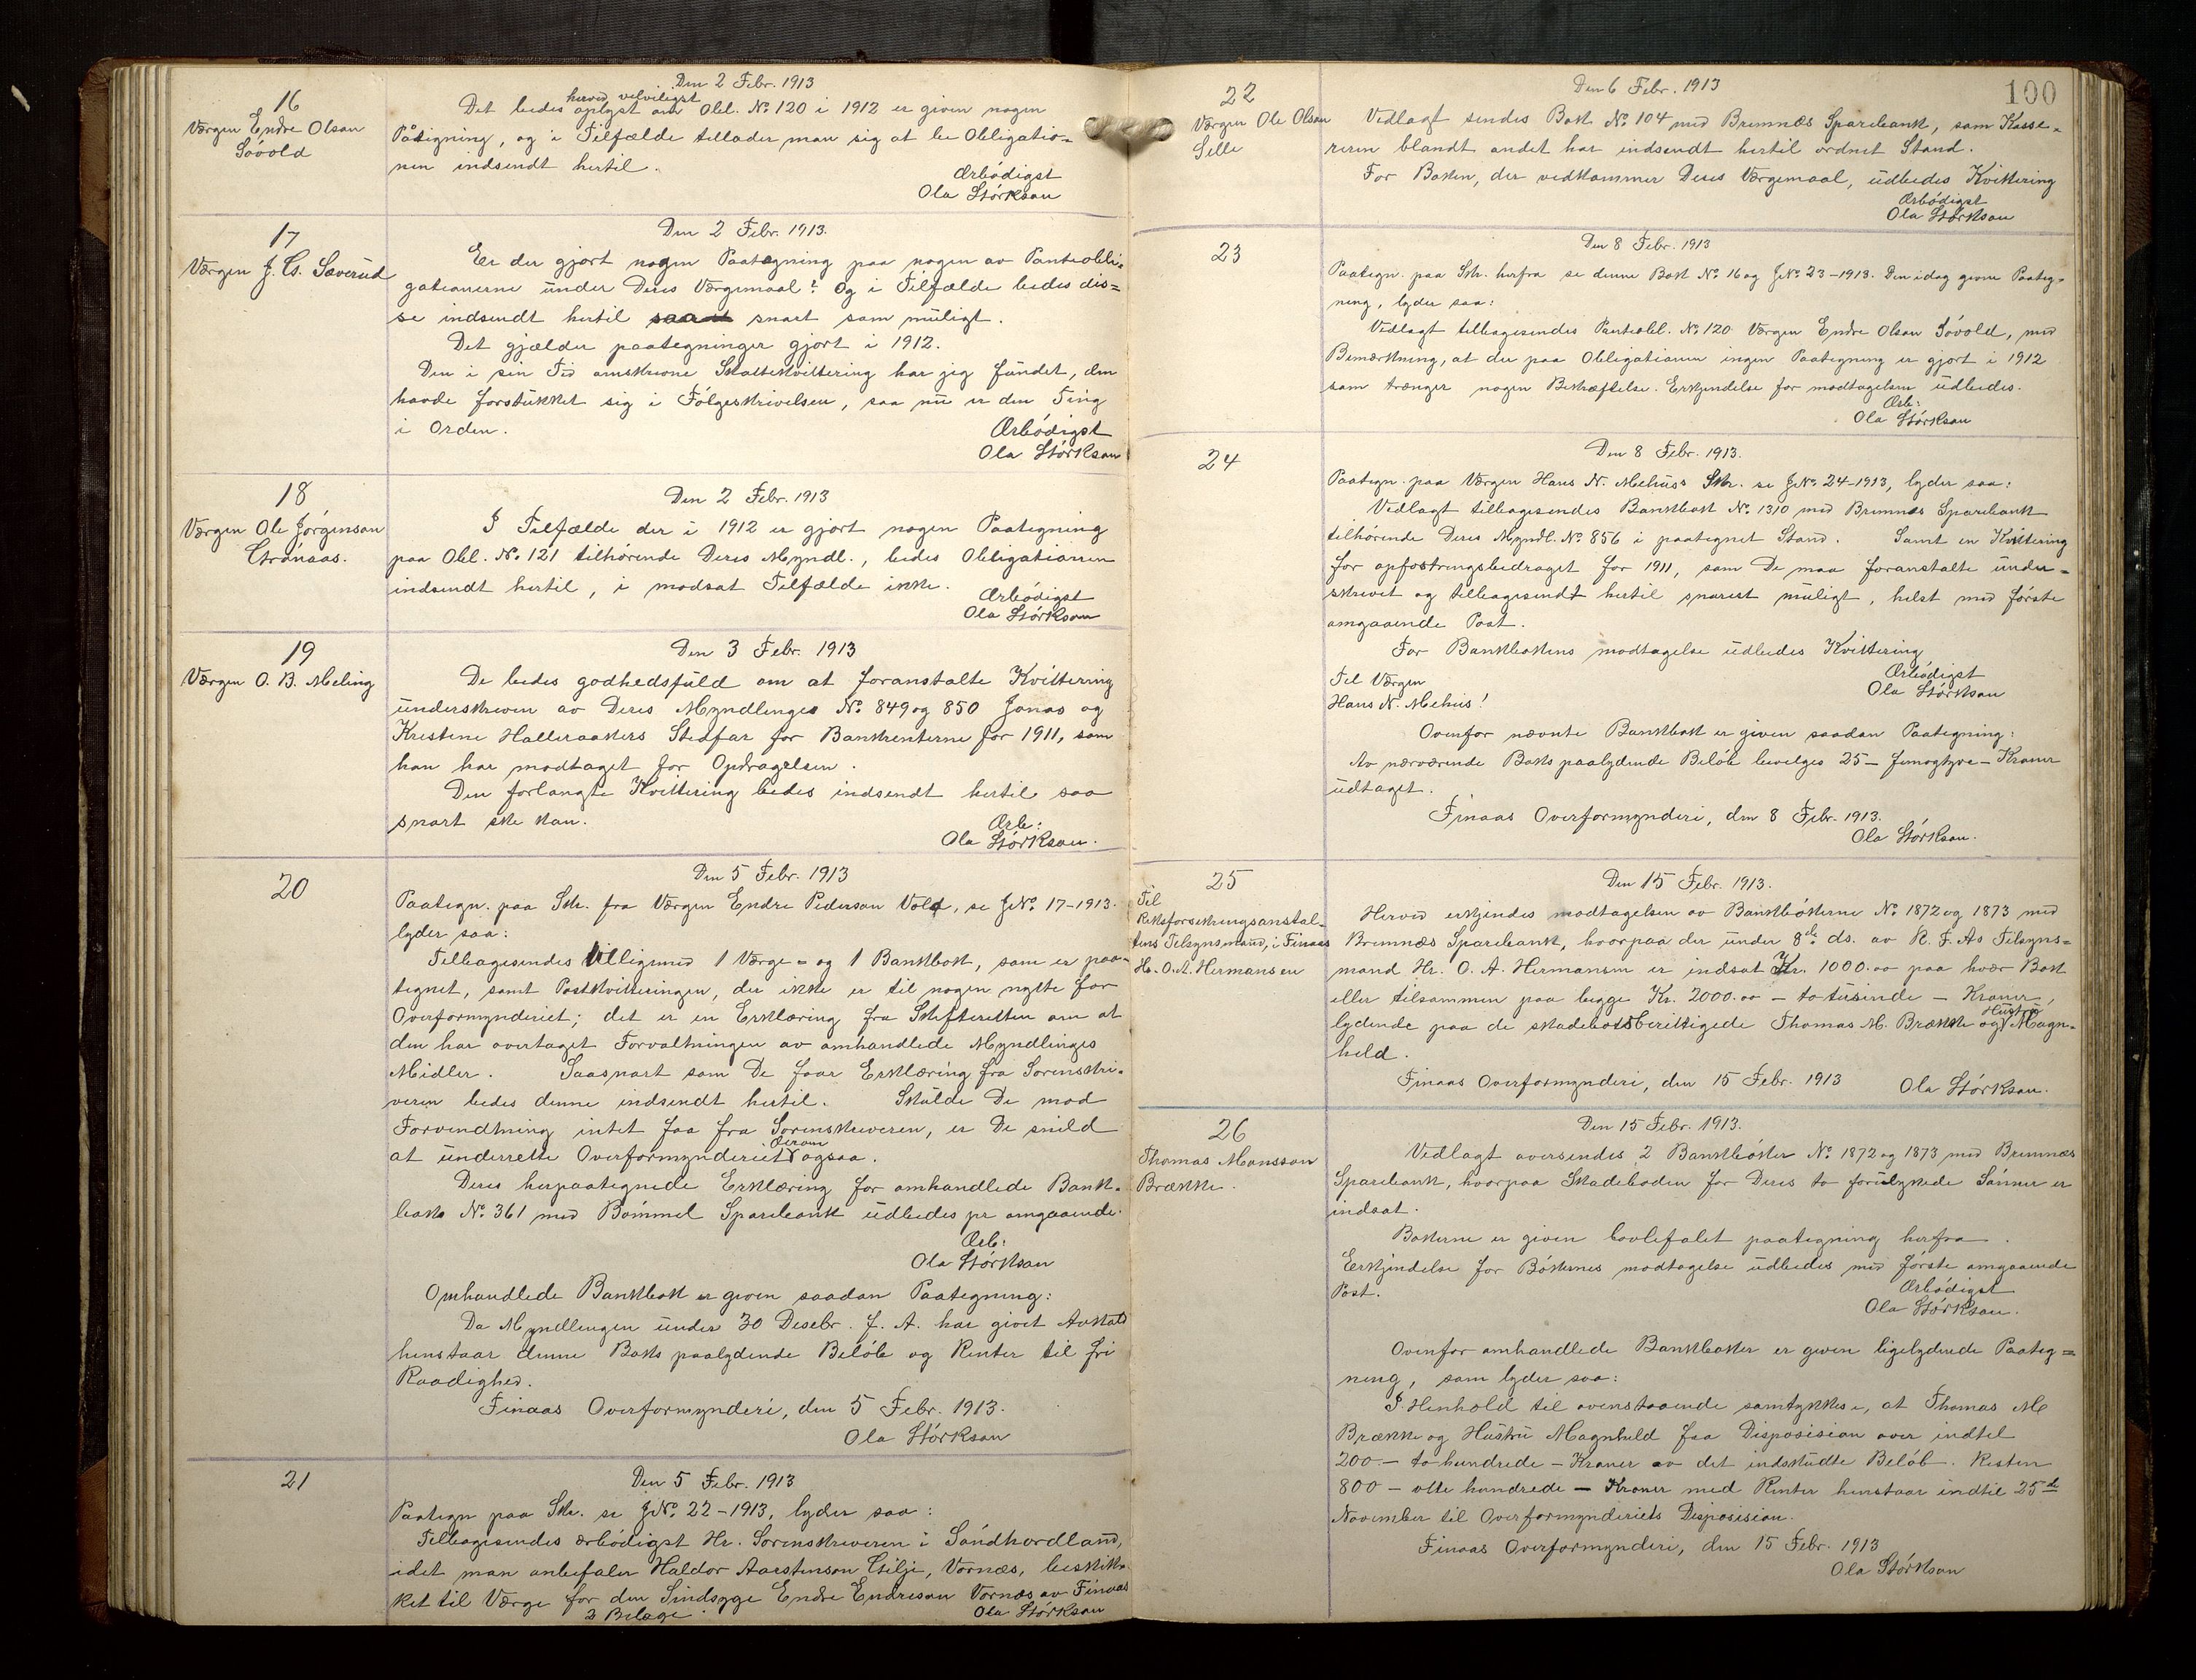 16
Værgen Endre Olson
Sövold
Den 2 Febr. 1913
herved velvilligst
Det bedes oplyst om Obl. No 120 i 1912 er given nogen
Påtegning, og i Tilfælde tillader man sig at be Obligatio=
nen indsendt hertil.
Ærbödigst
Ola Störkson
17
Værgen J. Cs. Sæverud
Den 2 Febr. 1913.
Er der gjort nogen Paategning paa nogen av Panteobli=
gationerne under Deres Værgemaal? Og i Tilfælde bedes dis=
se indsendt hertil snart som muligt.
Det gjælder paategninger gjort i 1912.
Den i sin Tid omskrevne Skattekvittering har jeg fundet, den
havde forstukket sig i Fölgeskrivelsen, saa nu er den Ting
i Orden.
Ærbödigst
Ola Störkson
18
Værgen Ole Jörgenson
Grönaas.
Den 2 Febr. 1913
I Tilfælde der i 1912 er gjort nogen Paategning
paa Obl. No. 121 tilhörende Deres Myndl., bedes Obligationen
indsendt hertil, i modsat Tilfælde ikke.
Ærbödigst
Ola Störkson
19
Værgen O. B. Meling
Den 3 Febr. 1913
De bedes godhedsfuld om at foranstalte Kvittering
underskreven av Deres Myndlinges No. 849 og 850 Jonas og
Kristine Halleraakers Stedfar for Bankrenterne for 1911, som
han har modtaget for Opdragelsen.
Den forlangte Kvittering bedes indsendt hertil saa
snart ske kan.
Ærb:
Ola Störkson.
20
Den 5 Febr. 1913
Paategn. paa Skr. fra Værgen Endre Pederson Vold, se JNo. 17-1913.
lyder saa:
Tilbagesendes tilligemed 1 Værge= og 1 Bankbok, som er paa=
tegnet, samt Postkvitteringen, der ikke er til nogen nytte for
Overformynderiet; det er en Erklæring fra Skifteretten om at
den har overtaget Forvaltningen av omhandlede Myndlinges
Midler. Saasnart som De faar Erklæring fra Sorenskri=
veren bedes denne indsendt hertil. Skulde De mod
Forvendtning intet faa fra Sorenskriveren, er De snild
derom
at underrette Overformynderiet ogsaa.
Deres herpaategnede Erklæring for omhandlede Bank=
boks No. 361 med Bömmel Sparebank udbedes pr omgaaende.
Ærb:
Ola Störkson
Omhandlede Bankbok er given saadan Paategning:
Da Myndlingen under 30 Desebr. f. A. har givet Avkald
henstaar denne Boks paalydende Belöb og Renter til fri
Raadighed.
Finaas Overformynderi, den 5 Febr. 1913.
Ola Störkson
21
Den 5 Febr. 1913
Paategn paa Skr. se JNo. 22-1913, lyder saa:
Tilbagesendes ærbödigst Hr. Sorenskriveren i Söndhordland,
idet man anbefaler Haldor Aarstenson Gilje, Vornæs, beskik=
ket til Værge for den Sindsyge Endre Endreson Vornæs av Finaas
2 Bilage.
Ola Störkson
100
22
Værgen Ole Olson
Selle
Den 6 Febr. 1913
Vedlagt sendes Bok No. 104 med Bremnæs Sparebank, som Kasse=
reren blandt andet har indsendt hertil ordnet Stand.
For Boken, der vedkommer Deres Værgemaal, udbedes Kvittering
Ærbödigst
Ola Störkson
23
Den 8 Febr. 1913
Paategn. paa Skr. herfra se denne Bok No. 16 og JNo. 23-1913. Den idag given Paateg=
ning, lyder saa:
Vedlagt tilbagesendes Panteobl. No. 120 Værgen Endre Olson Sövold, med
Bemærkning, at der paa Obligationen ingen Paategning er gjort i 1912
som trænger nogen Bekræftelse. Erkjendelse for modtagelsen udbedes.
Ærb:
Ola Störkson
24
Den 8 Febr. 1913.
Paategn. paa Værgen Hans N. Mehus's Skr. se JNo. 24-1913, lyder saa:
Vedlagt tilbagesendes Bankbok No. 1310 med Bremnæs Sparebank
tilhörende Deres Myndl. No. 856 i paategnet Stand. Samt en Kvittering
for opfostringsbedraget for 1911, som De maa foranstalte under=
skrevet og tilbagesendt hertil snarest muligt, helst med förste
omgaaende Post.
For Bankbokens modtagelse udbedes Kvittering
Ærbödigst
Ola Störkson
Til Værgen
Hans N. Mehus!
Ovenfor nævnte Bankbok er given saadan Paategning:
Av nærværende Boks paalydende Belöb bevilges 25 - femogtyve - Kroner
udtaget.
Finaas Overformynderi, den 8 Febr. 1913.
Ola Störkson.
25
Til
Riksforsikringsanstal=
tens Tilsynsmand, i Finaas
Hr. O. A. Hermansen
Den 15 Febr. 1913.
Herved erkjendes modtagelsen av Bankbökerne No. 1872 og 1873 med
Bremnæs Sparebank, hvorpaa der under 8de ds. av R. F. As Tilsyns=
mand Hr. O. A. Hermansen er indsat Kr. 1000.00 paa hver Bok
eller tilsammen paa begge Kr. 2000.00 - to tusinde - Kroner,
Hustru
lydende paa de skadebotsberittigede Thomas M. Brække og Magn=
hild.
Finaas Overformynderi, den 15 Febr. 1913
Ola Störkson.
26
Thomas Monsson
Brække.
Den 15 Febr. 1913.
Vedlagt oversendes 2 Bankböker No. 1872 og 1873 med Bremnæs
Sparebank, hvorpaa Skadeboden for Deres to forulykede Sönner er
indsat.
Bökerne er given lovbefalet paategning herfra.
Erkjendelse for Bökernes modtagelse udbedes med förste omgaaende
Post.
Ærbödigst
Ola Störkson.
Ovenfor omhandlede Bankböker er given ligelydende Paateg=
ning, som lyder saa:
I Henhold til ovenstaaende samtykkes, at Thomas M
Brække og Hustru Magnhild faa Disposision over indtil
200.- to hundrede - Kroner av det indskudte Belöb. Resten
800 - otte hundrede - Kroner med Renter henstaar indtil 25de
November til Overformynderiets Disposision.
Finaas Overformynderi, den 15 Febr. 1913
Ola Störkson